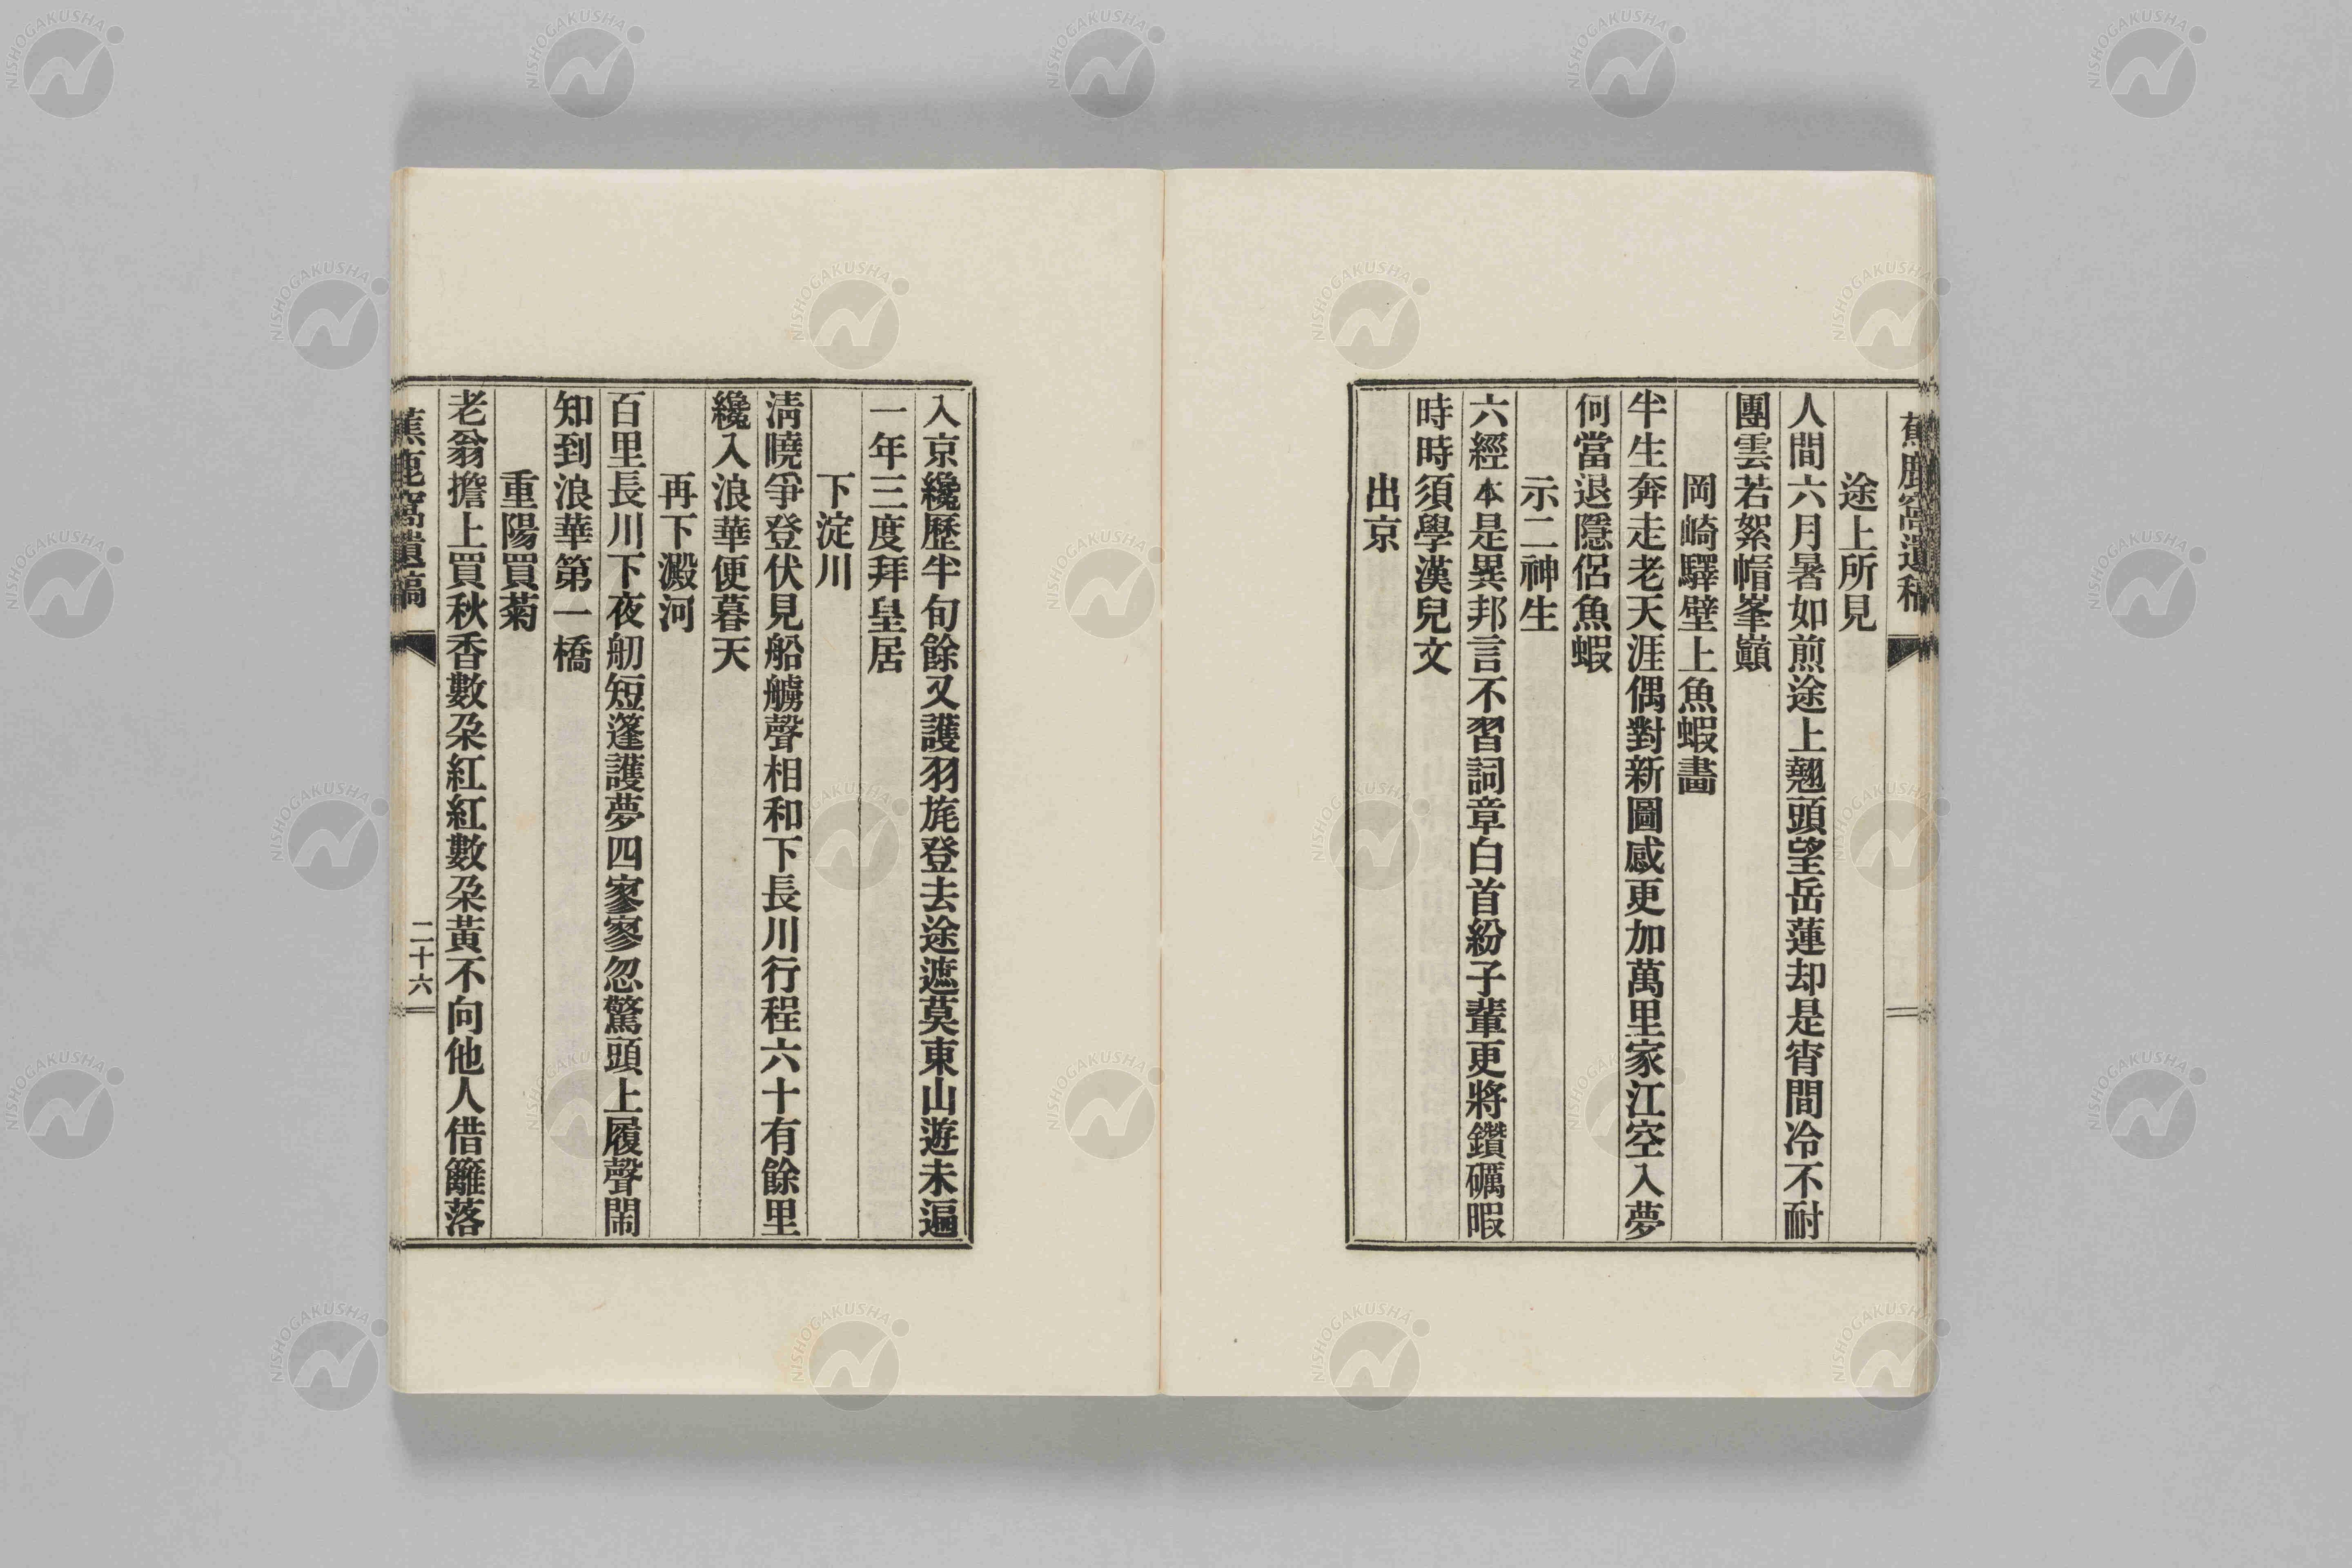 蕉鹿窩遺稿
途上所見
人間六月暑如煎途上翹頭望岳蓮却是宵間冷不耐
團雲若絮帽峯巓
岡崎驛壁上魚蝦畵
半生奔走老天涯偶對新圖感更加萬里家江空入夢
何當退隱侶魚蝦
示二神生
六經本是異邦言不習詞章白首紛子輩更將鑽礪暇
時時須學漢兒文
出京
入京纔歷半旬餘又護羽旄登去途遮莫東山遊未遍
一年三度拜皇居
下淀川
淸曉爭登伏見船艣聲相和下長川行程六十有餘里
纔入浪華便暮天
再下澱河
百里長川下夜舠短篷護夢四寥寥忽驚頭上履聲鬧
知到浪華第一橋
重陽買菊
老翁擔上買秋香數朶紅紅數朶黃不向他人借籬落
蕉鹿窩遺稿
二十六
NISHOGAKUSHA